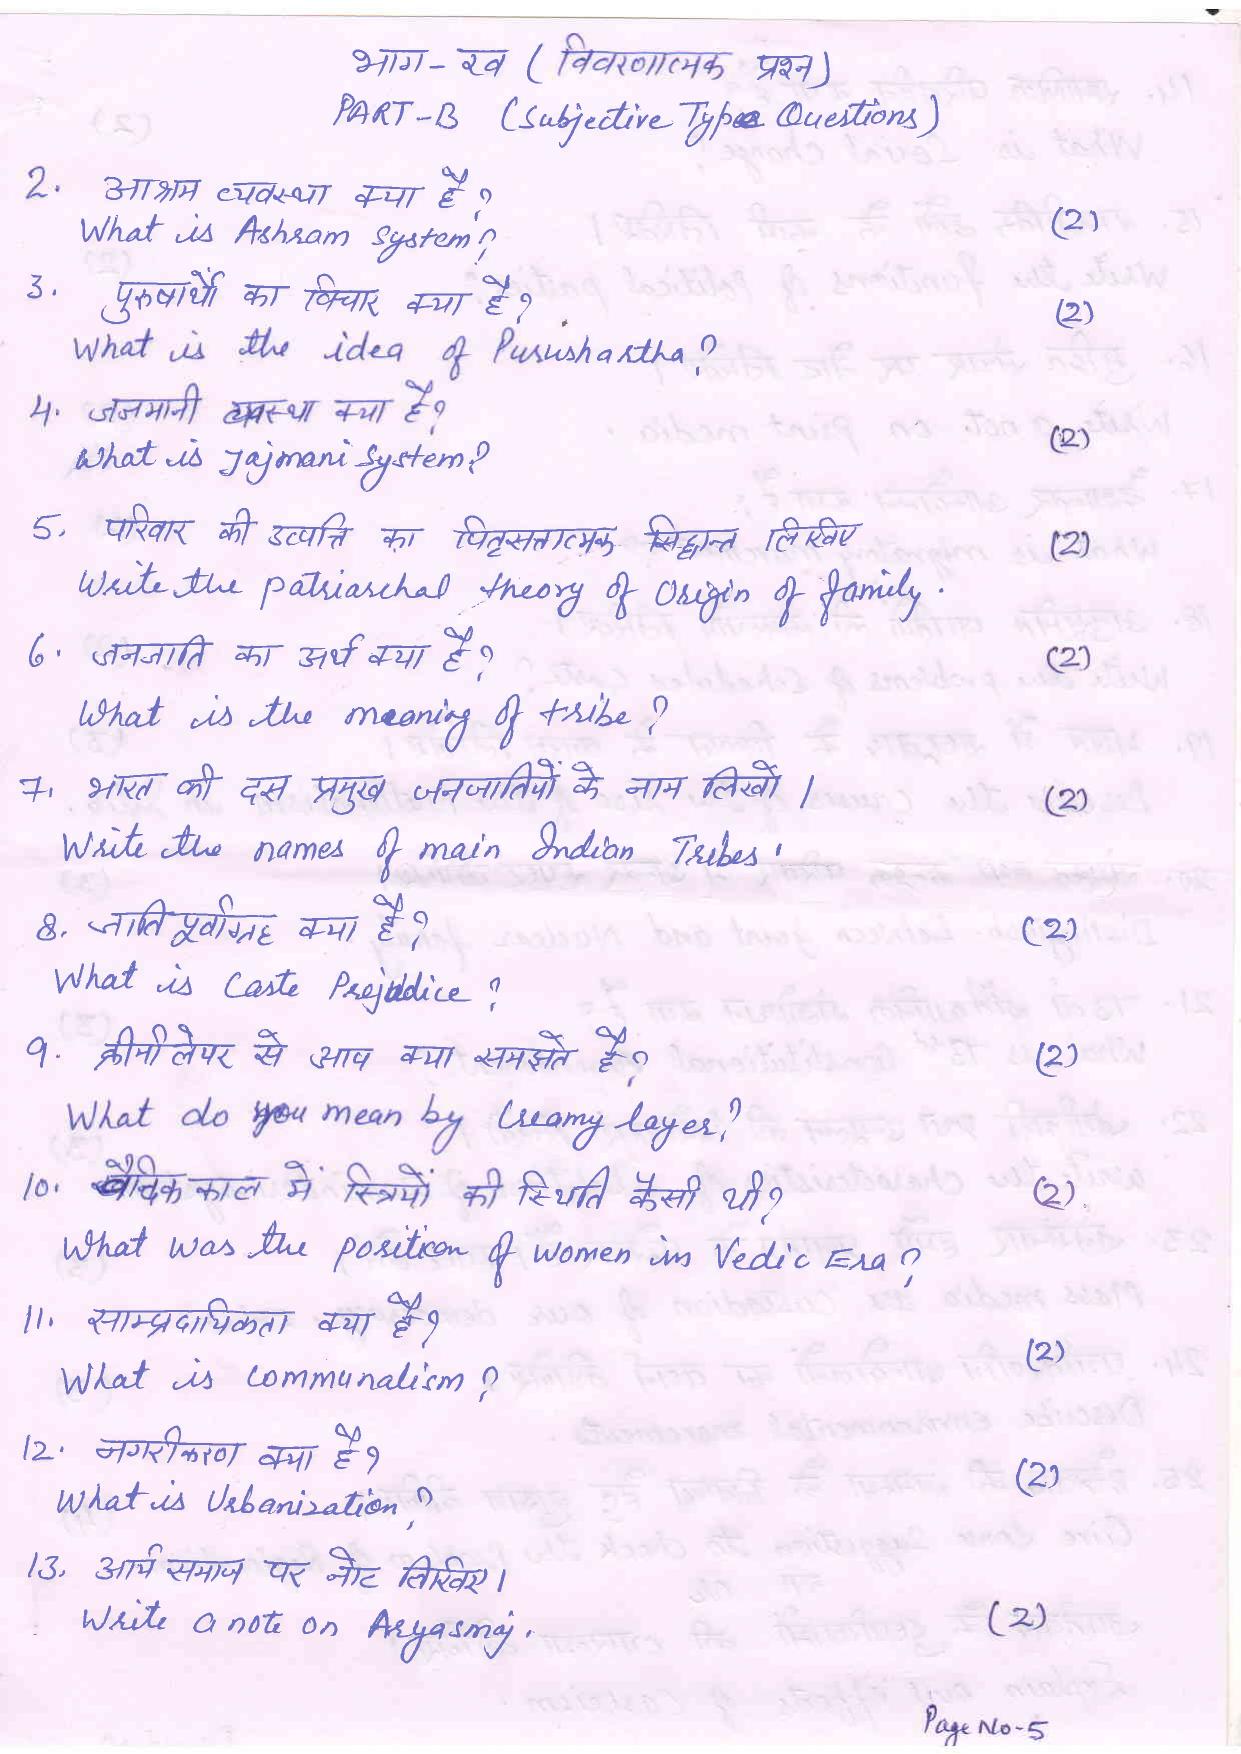 भाग-ख (विवरणात्मक प्रश्न)
PART-B (Subjective Type Questions)
2. आश्रम व्यवस्था क्या है?
What is Ashram System? (2)
3. पुरुषार्थो का विचार क्या है?
What is the idea of Purushartha? (2)
4. जजमानी व्यवस्था क्या है?
What is Jajmani System? (2)
5. परिवार की उत्पत्ति का पितृसत्तात्मक सिद्धान्त लिखिए (2)
Write the patriarchal theory of Origin of family.
6. जनजाति का अर्थ क्या है? (2)
What is the meaning of tribe?
7. भारत की दस प्रमुख जनजातियों के नाम लिखों। (2)
Write the names of main Indian Tribes.
8. जाति पूर्वाग्रह क्या है? (2)
What is Caste Prejudice?
9. क्रीमीलेयर से आप क्या समझते है? (2)
What do you mean by Creamy layer?
10. वैदिक काल में स्त्रियों की स्थिति कैसी थी? (2)
What was the position of women in Vedic Era?
11. साम्प्रदायिकता क्या है?
What is Communalism? (2)
12. नगरीकरण क्या है?
What is Urbanization? (2)
13. आर्य समाज पर नोट लिखिए।
Write a note on Aryasmaj. (2)
Page No-5